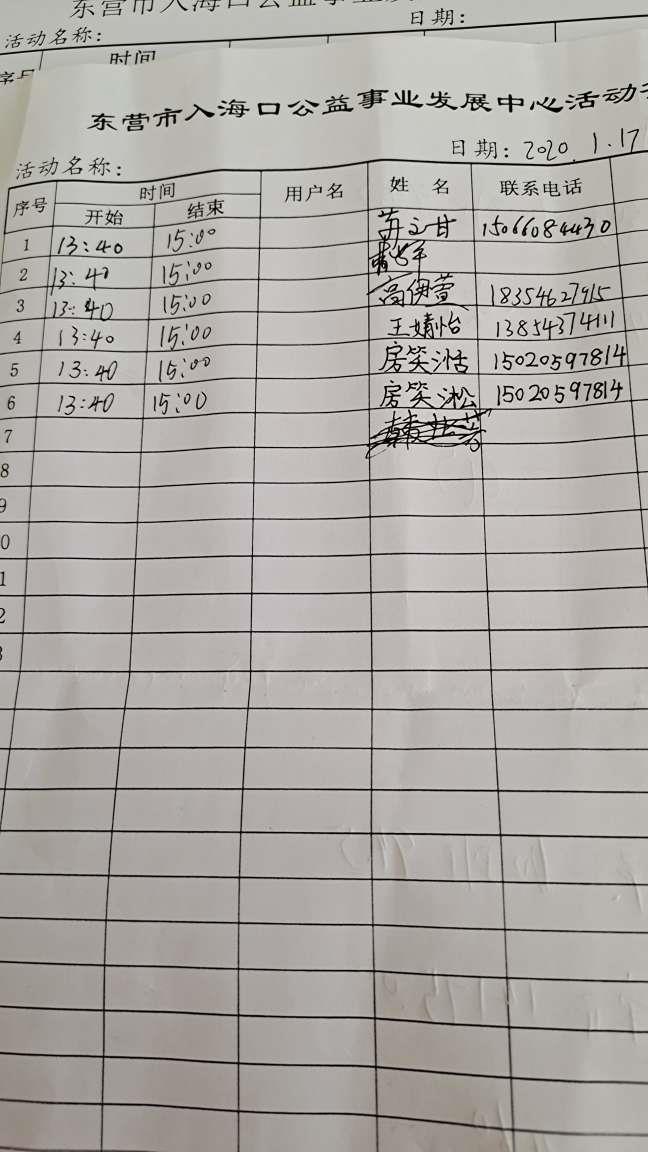 东营市入海口公益事业发
活动名称： 日期：
序号 时间
东营市入海口公益事业发展中心活动
活动名称： 日期：2020.1.17
序号 时间 用户名 姓 名 联系电话
开始 结束
1 13:40 15:00 苏立甘 15066084430
2 13:40 15:00
3 13:40 15:00 高伊萱 18354627915
4 13:40 15:00 王婧怡 13854374111
5 13:40 15:00 房笑沽 15020597814
6 13:40 15:00 房笑淞 15020597814
7
8
9
0
1
2
3